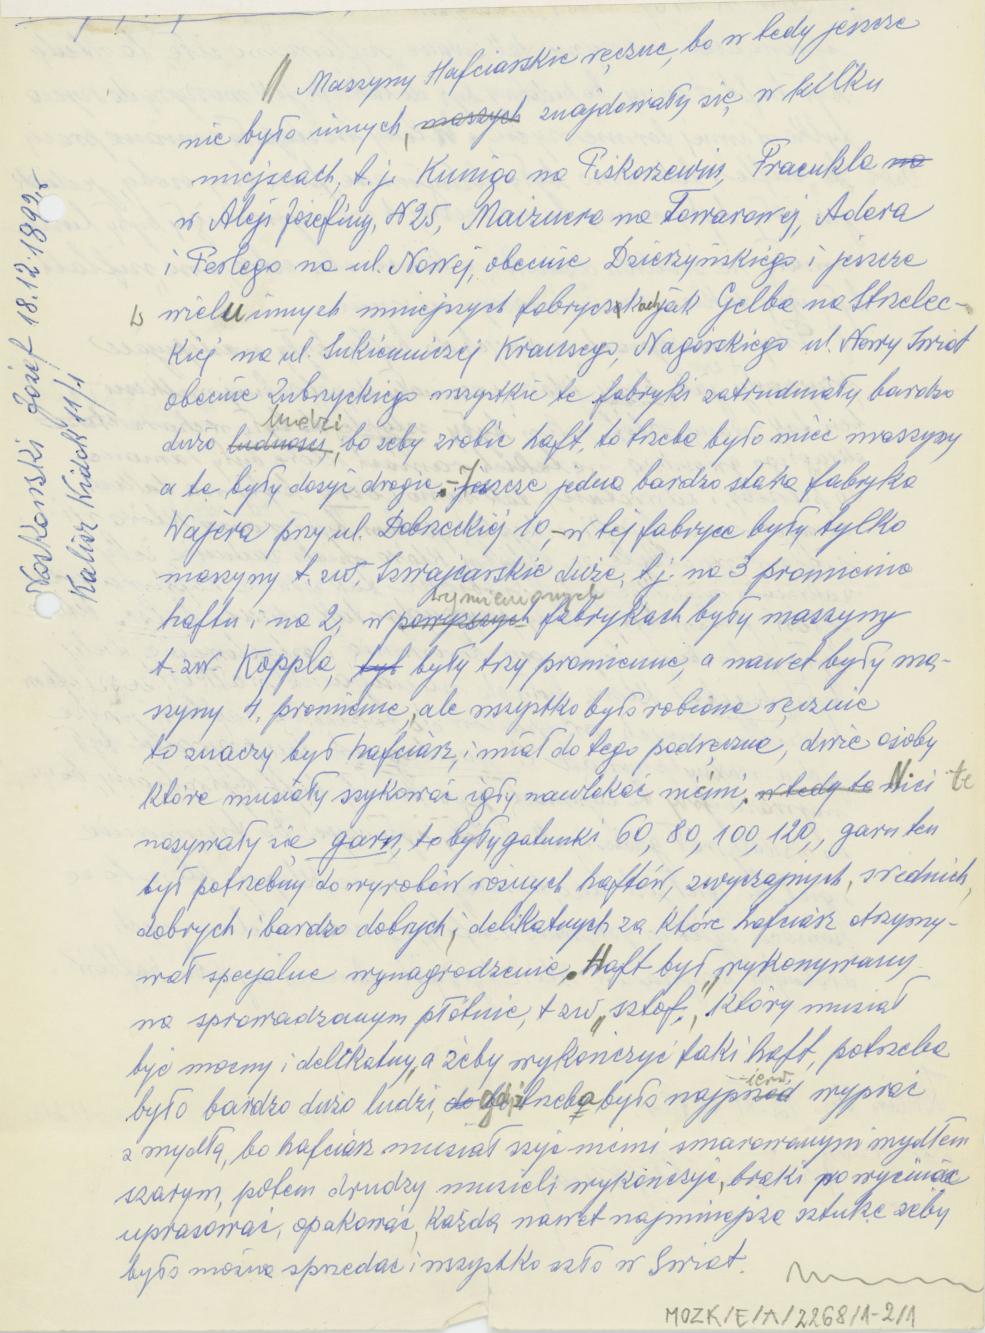 Noskowski Józef 18.12.1899 r.
Kalisz, Kridok 11/1
" Maszyny Hafciarskie ręczne, bo wtedy jeszcze
nie było innych, maszych znajdowały się, w kilku
miejscach, t.j. Kunigo na Piskorzewiu, Fraenkla na
w Aleji Józefiny, N 25, Maiznera na Towarowej, Adera
i Feslego na ul. Nowej, obecnie Dzierżyńskiego i jeszcze
w wielu innych mniejszych fabryczkach jak Gelba na Strzelec-
kiej na ul. Sukienniczej Krausego, Nagórskiego ul. Nowy Świat
obecnie Zubrzyckiego wszystkie te fabryki zatrudniały bardzo
ludzi
dużo ludności, bo żeby zrobić haft, to trzeba było mieć maszyny
a te były dosyć drogie. - Jeszcze jedna bardzo stara fabryka
Wajera przy ul. Dobrzeckiej 10, - w tej fabryce były tylko
maszyny t. zw. Szwajcarskie duże, t.j. na 3 promienie
wymienionych
haftu i na 2, w powyższych fabrykach były maszyny
t. zw. Kappla, był były trzy promienne, a nawet były ma-
szyny 4, promienne, ale wszystko było robione ręcznie
to znaczy był hafciarz, i miał do tego podręczne, dwie osoby
które musiały szykować igły nawlekać nićmi, wtedy te Nici te
nazywały się garn, to były gatunki 60, 80, 100, 120, garn ten
był potrzebny do wyrobów różnych haftów, zwyczajnych, średnich,
dobrych i bardzo dobrych, i delikatnych za które hafciarz otrzymy-
wał specjalne wynagrodzenie. Haft był wykonywany
na sprowadzanym płótnie, t zw „sztof", który musiał
być mocny i delikatny, a żeby wykończyć taki haft, potrzeba
ierw
było bardzo dużo ludzi, do gdyż trzeba było najprzod wyprać
z mydła, bo hafciarz musiał szyć nićmi smarowanymi mydłem
szarym, potem drudzy musieli wykończyć, braki powycinać
uprasować, opakować, każdą nawet najmniejsze sztukę żeby
było można sprzedać i wszystko szło w Świat.
MOZK/E/A/2268/1-2/1